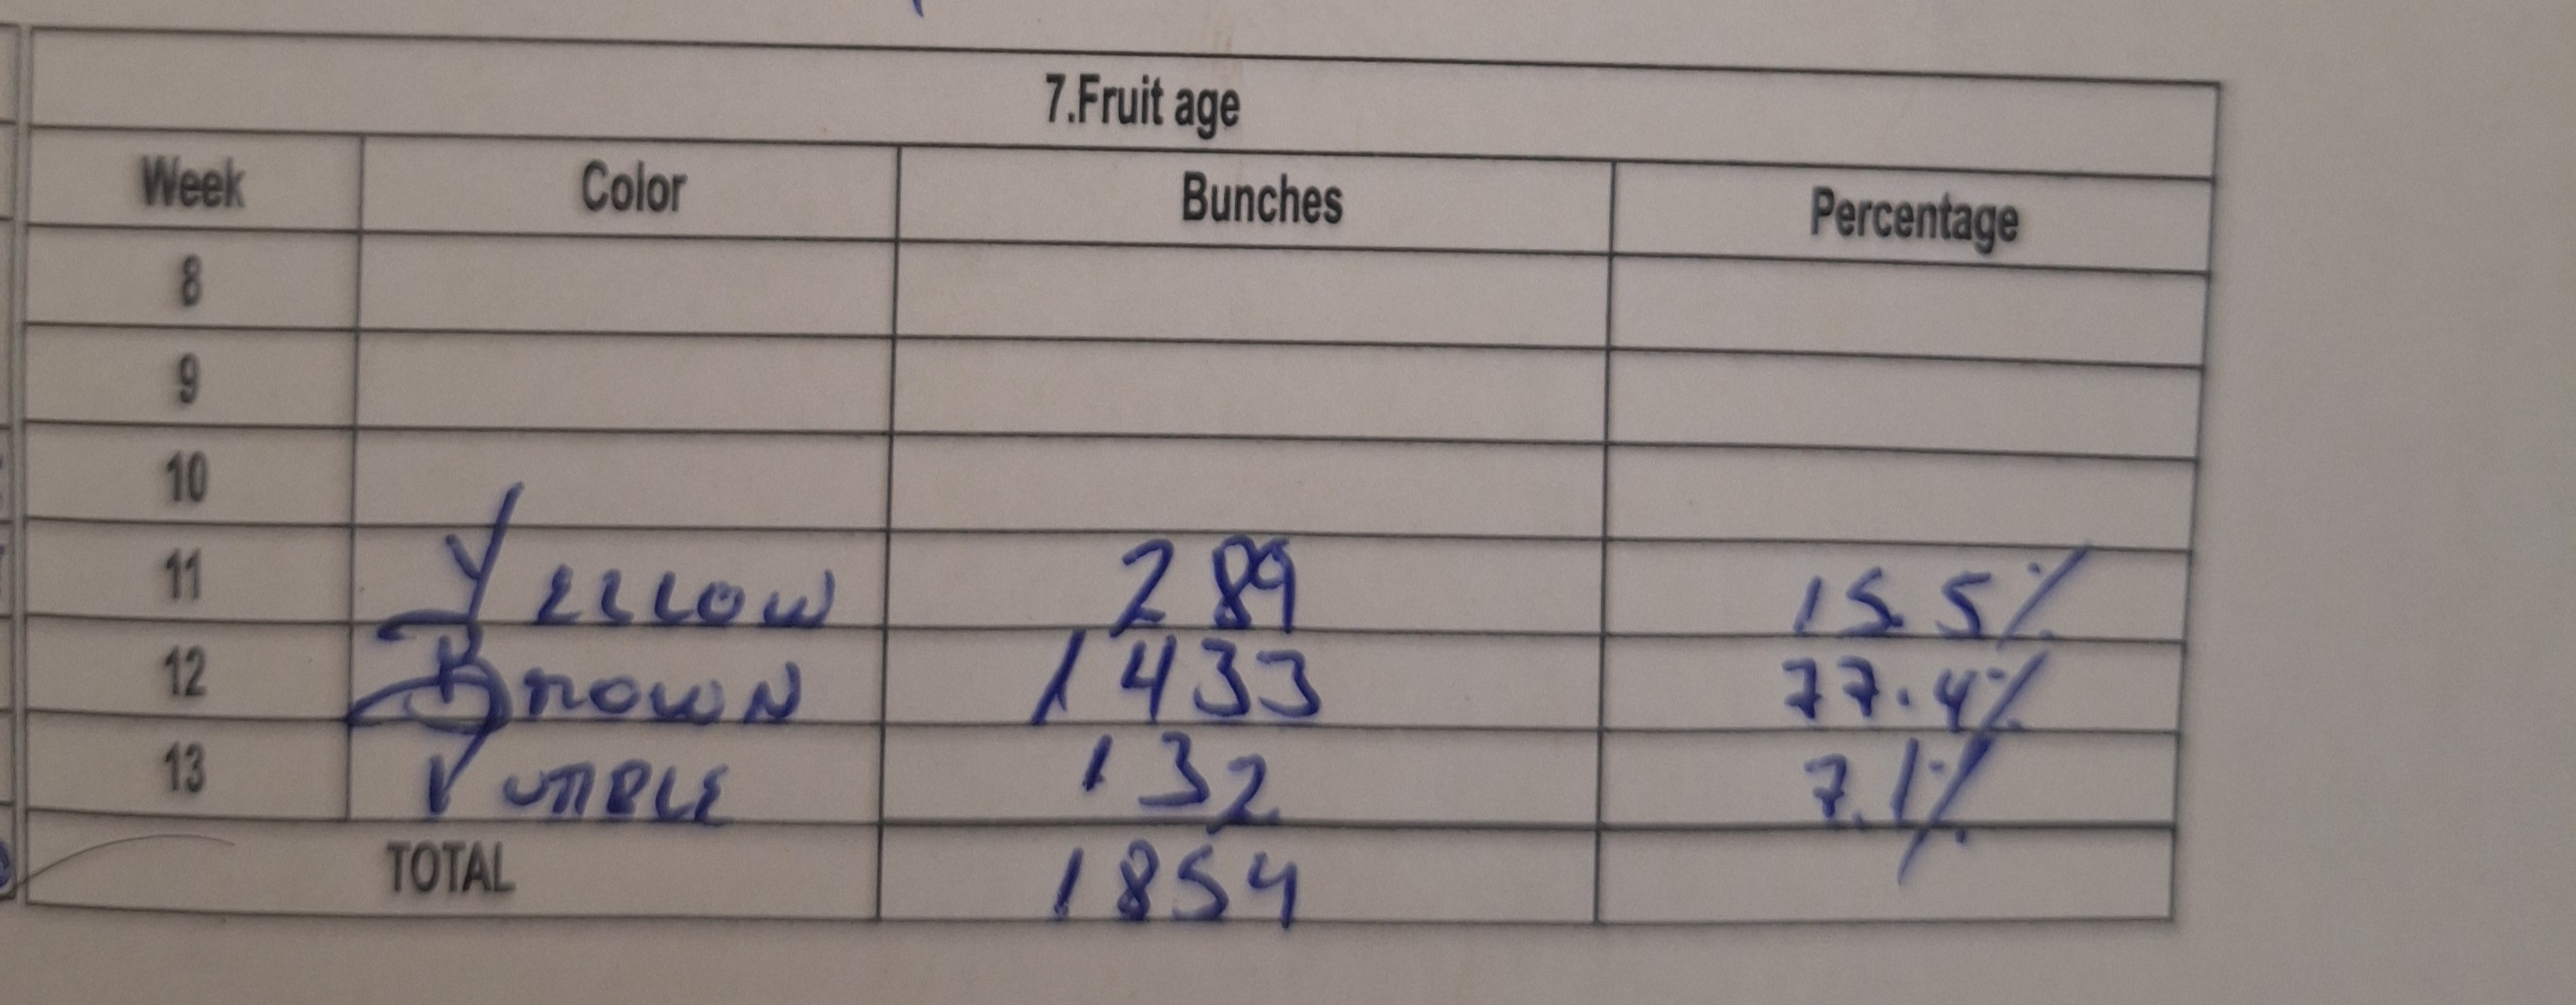 7.Fruit age
Week Color Bunches Percentage
8
9
10
11 YELLOW 289 15.5%
12 BROWN 1433 77.4%
13 PURPLE 132 7.1%
TOTAL 1854